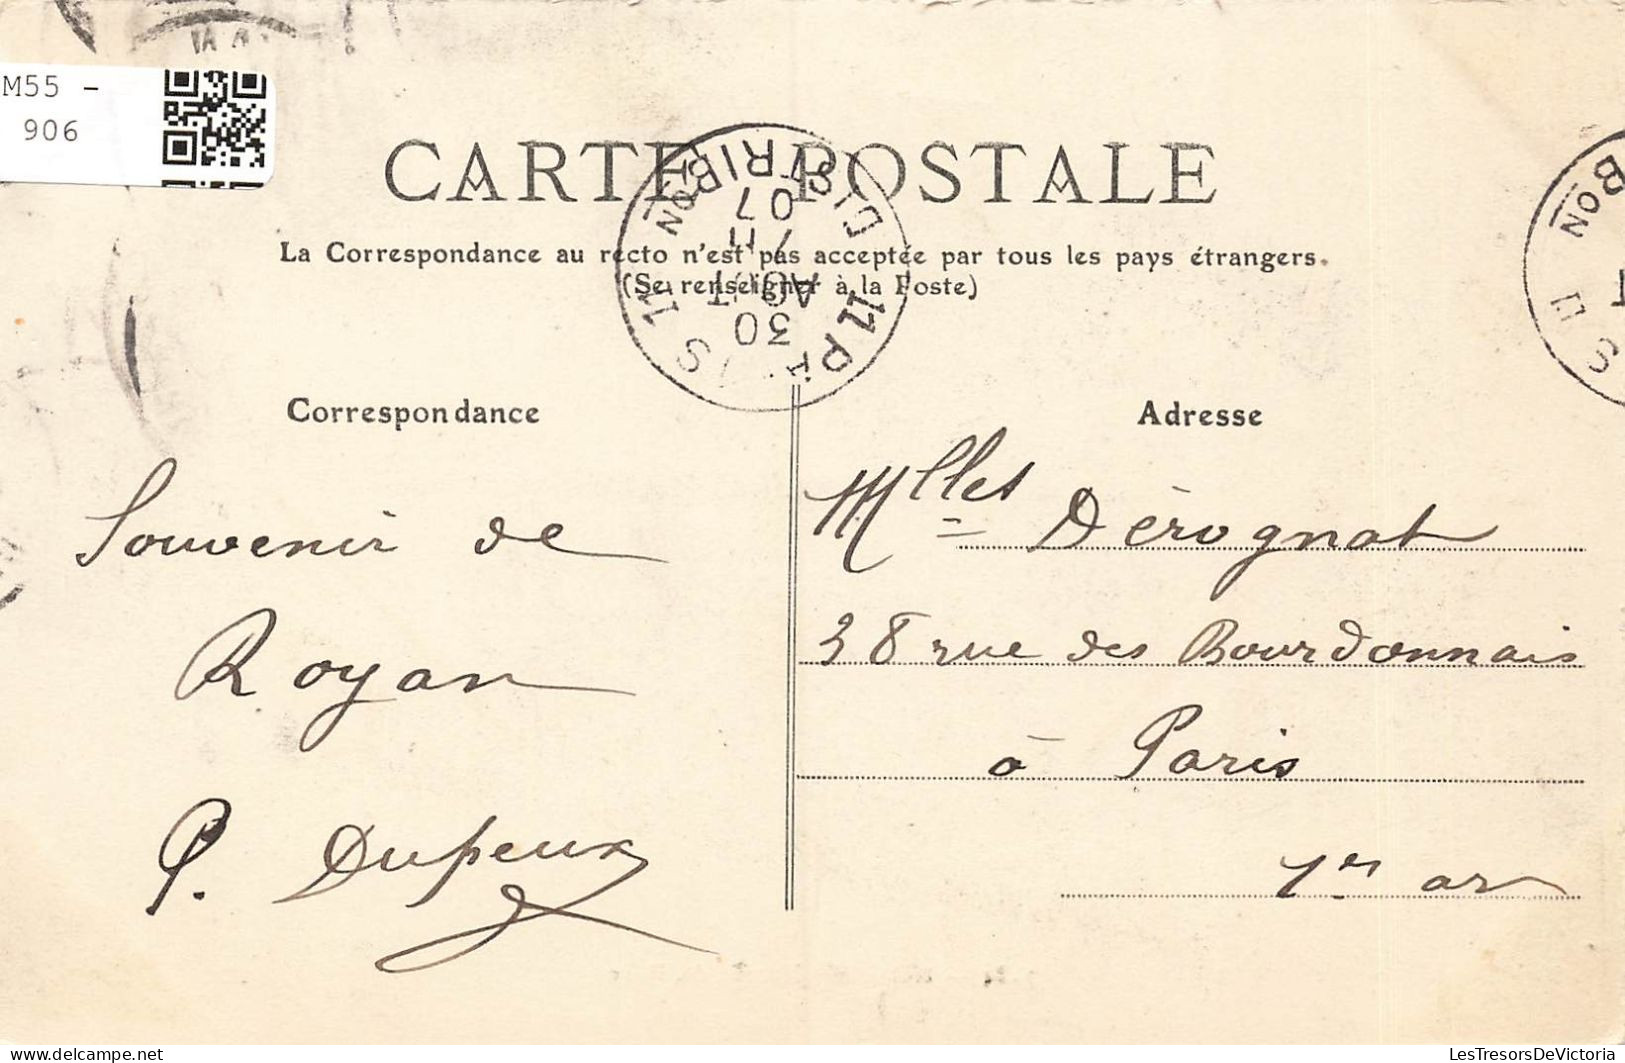 M55 -
906
CARTE POSTALE
La Correspondance au recto n'est pas acceptée par tous les pays étrangers.
(Se renseigner à la Poste)
DISTRIB ON
07
30
Correspondance
Souvenir de
Royan
P. Dupeux
Adresse
Mlles Dérognat
38 rue des Bourdonnais
à Paris
1er ar
delcampe.net
LesTresorsDeVictoria